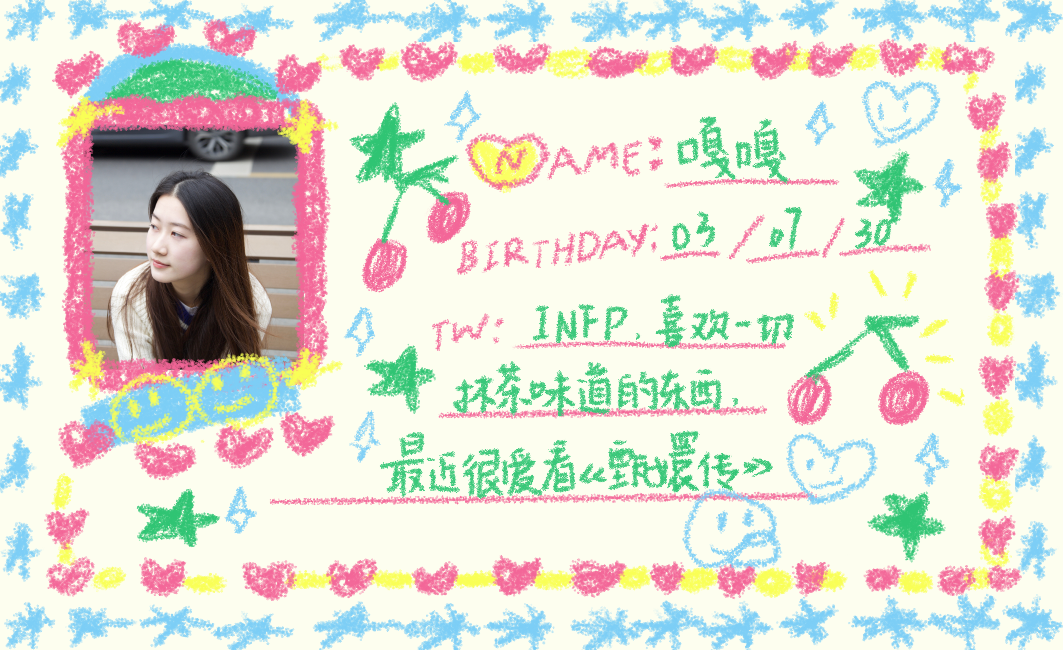 NAME: 嘎嘎
BIRTHDAY: 03 / 07 / 30
TW: INFP, 喜欢一切
抹茶味道的东西,
最近很爱看《甄嬛传》